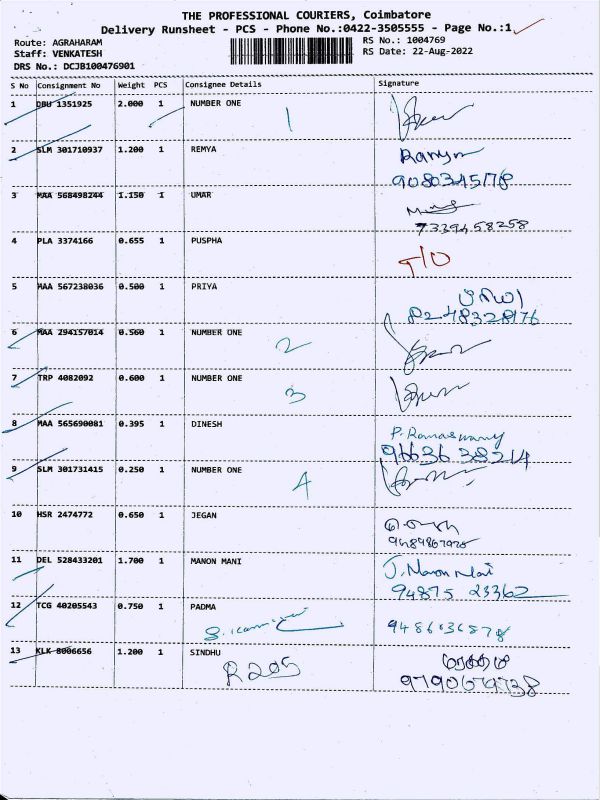 THE PROFESSIONAL COURIERS, Coimbatore
Delivery Runsheet - PCS - Phone No.:0422-3505555 - Page No.:1
Route: AGRAHARAM RS No.: 1004769
Staff: VENKATESH RS Date: 22-Aug-2022
DRS No.: DCJB100476901
S No Consignment No Weight PCS Consignee Details Signature
1 DBU 1351925 2.000 1 NUMBER ONE 1
2 SLM 301710937 1.200 1 REMYA
9080345178
3 MAA 568498244 1.150 1 UMAR
7339458258
4 PLA 3374166 0.655 1 PUSPHA T/O
5 MAA 567238036 0.500 1 PRIYA
8248328176
6 MAA 294157014 0.560 1 NUMBER ONE 2
7 TRP 4082092 0.600 1 NUMBER ONE 3
8 MAA 565690081 0.395 1 DINESH P. Ramaswamy
9663638214
9 SLM 301731415 0.250 1 NUMBER ONE 4
10 HSR 2474772 0.650 1 JEGAN
11 DEL 528433201 1.700 1 MANON MANI J. Manon Mani
94875 23362
12 TCG 40205543 0.750 1 PADMA
13 KLK 8006656 1.200 1 SINDHU
R205 9790679738